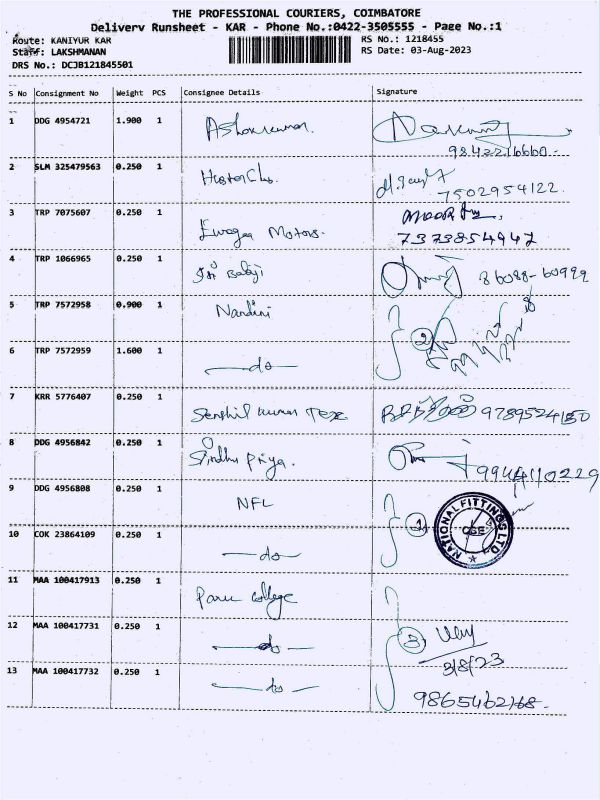 THE PROFESSIONAL COURIERS, COIMBATORE
Delivery Runsheet - KAR - Phone No.:0422-3505555 - Page No.:1
Route: KANIYUR KAR RS No.: 1218455
Staff: LAKSHMANAN RS Date: 03-Aug-2023
DRS No.: DCJB121845501
S No Consignment No Weight PCS Consignee Details Signature
1 DDG 4954721 1.900 1 Ashokkumar.
2 SLM 325479563 0.250 1
7502954122.
3 TRP 7075607 0.250 1 Motors.
7373854947
4 TRP 1066965 0.250 1 Sri Balaji 86088-60999
5 TRP 7572958 0.900 1 Nandini
2
6 TRP 7572959 1.600 1 —do—
7 KRR 5776407 0.250 1 Senthil kumar Tex 9789524150
8 DDG 4956842 0.250 1 Sindhu Priya. 9944110229
9 DDG 4956808 0.250 1 NFL
1 NATIONAL FITTINGS LTD CBE
10 COK 23864109 0.250 1 —do—
11 MAA 100417913 0.250 1 college
12 MAA 100417731 0.250 1 —do— 3
3/8/23
13 MAA 100417732 0.250 1 —do—
9865462168.